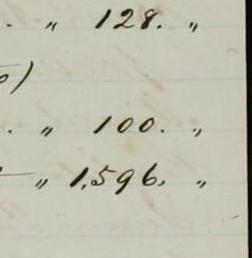 . " 128. "
)
. " 100. "
" 1,596, "